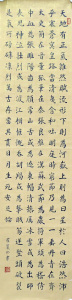 天地有正氣雜然賦流形下則為河嶽上則為日星於人曰浩然沛
乎塞蒼冥皇路當清夷含和吐明庭時窮節乃見一一垂丹青在
齊太史簡在晉董狐筆在秦張良椎在漢蘇武節為嚴將軍頭為嵇侍
中血為張睢陽齒為顏常山舌或為遼東帽清操厲冰雪或為出師
表鬼神泣壯烈或為渡江楫慷慨吞胡羯或為擊賊笏逆豎頭破裂
是氣所磅礴凜烈萬古存當其貫日月生死安足論